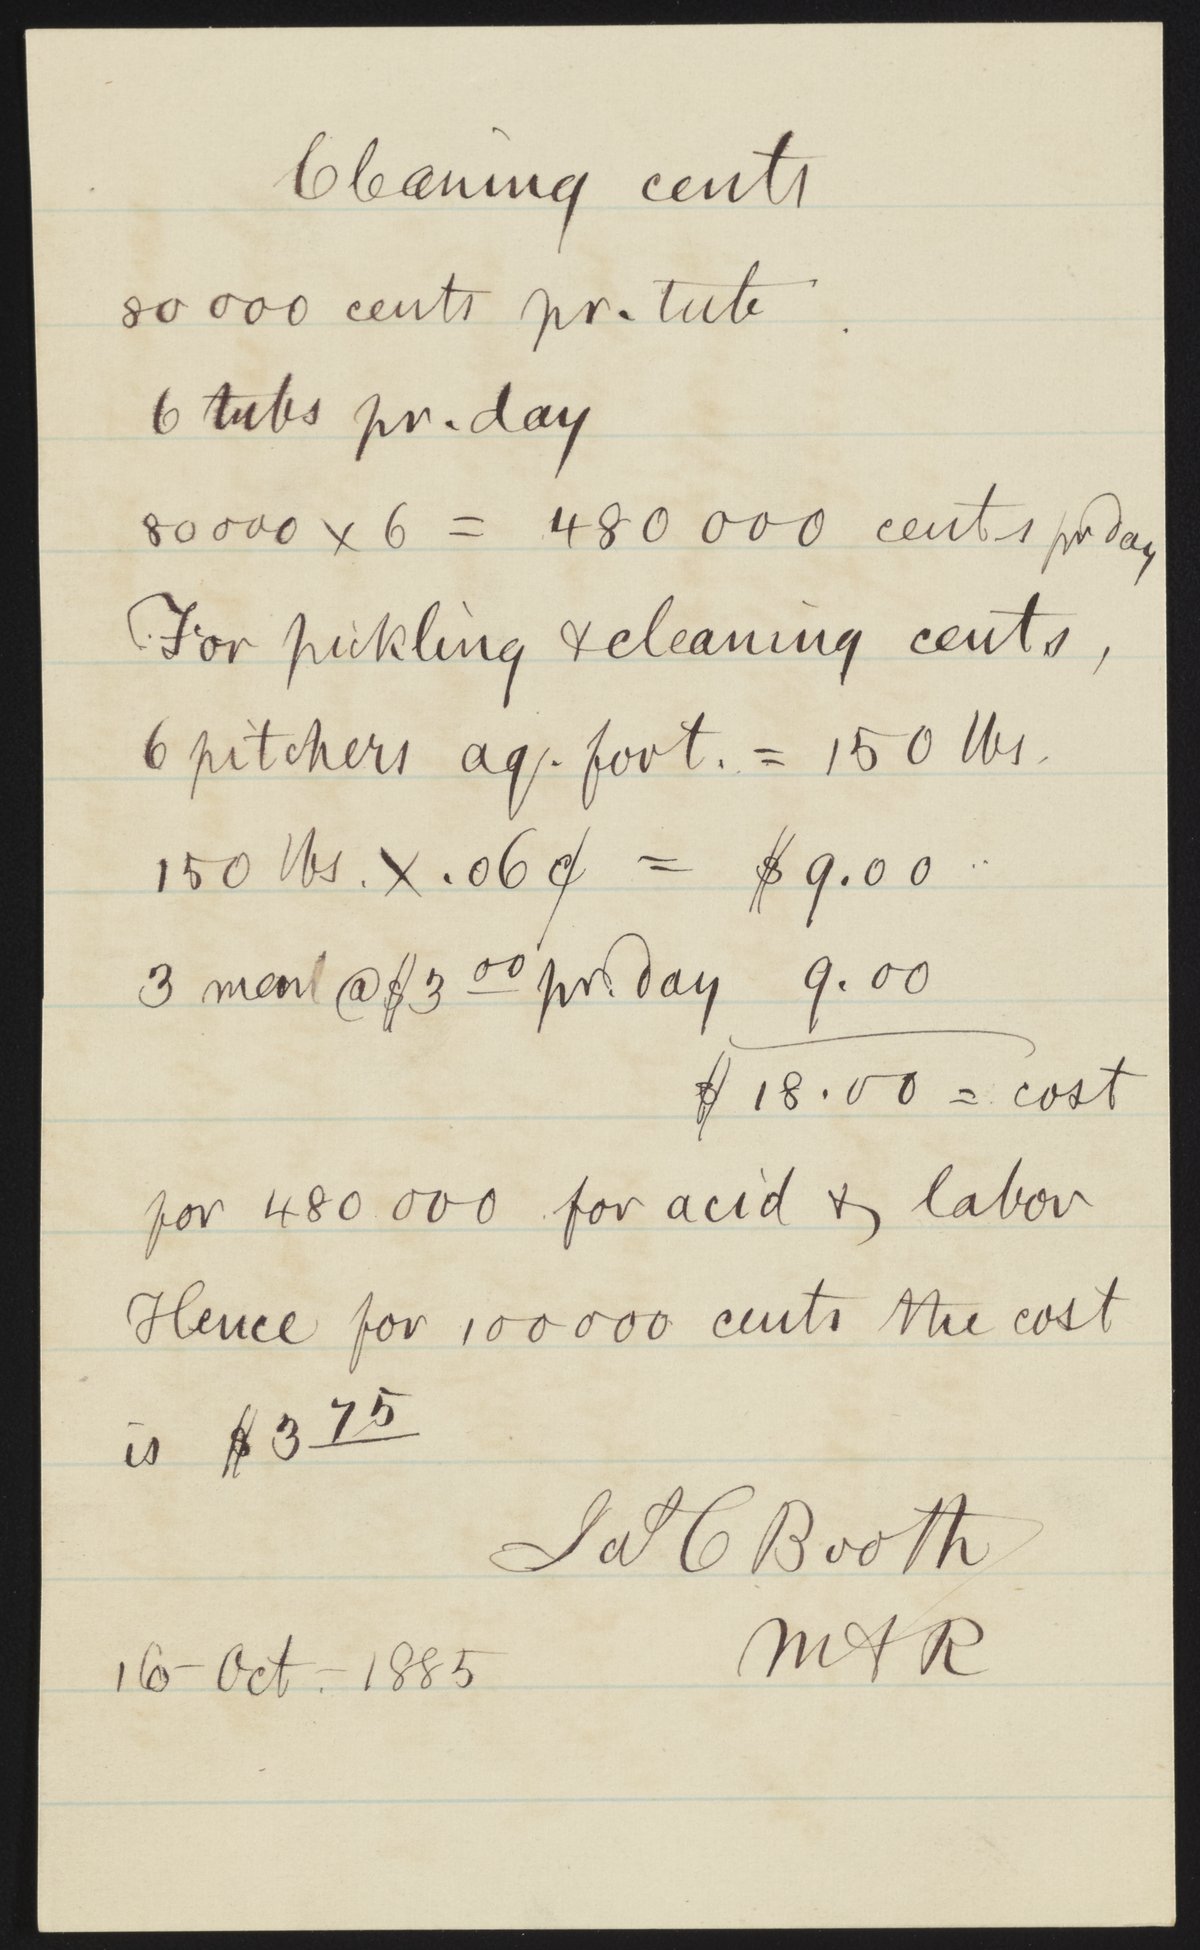 Cleaning cents
80 000 cents pr. tub
6 tubs pr. day
80 000 x 6 = 480 000 cents pr day
For pickling & cleaning cents,
6 pitchers aq. fort. = 150 lbs.
150 lbs. x .06¢ = $9.00
3 men @ $3 00 pr. day 9.00
$18.00 = cost
for 480 000 for acid & labor
Hence for 100 000 cents the cost
is $3 75
Jas C Booth
M & R
16 - Oct - 1885